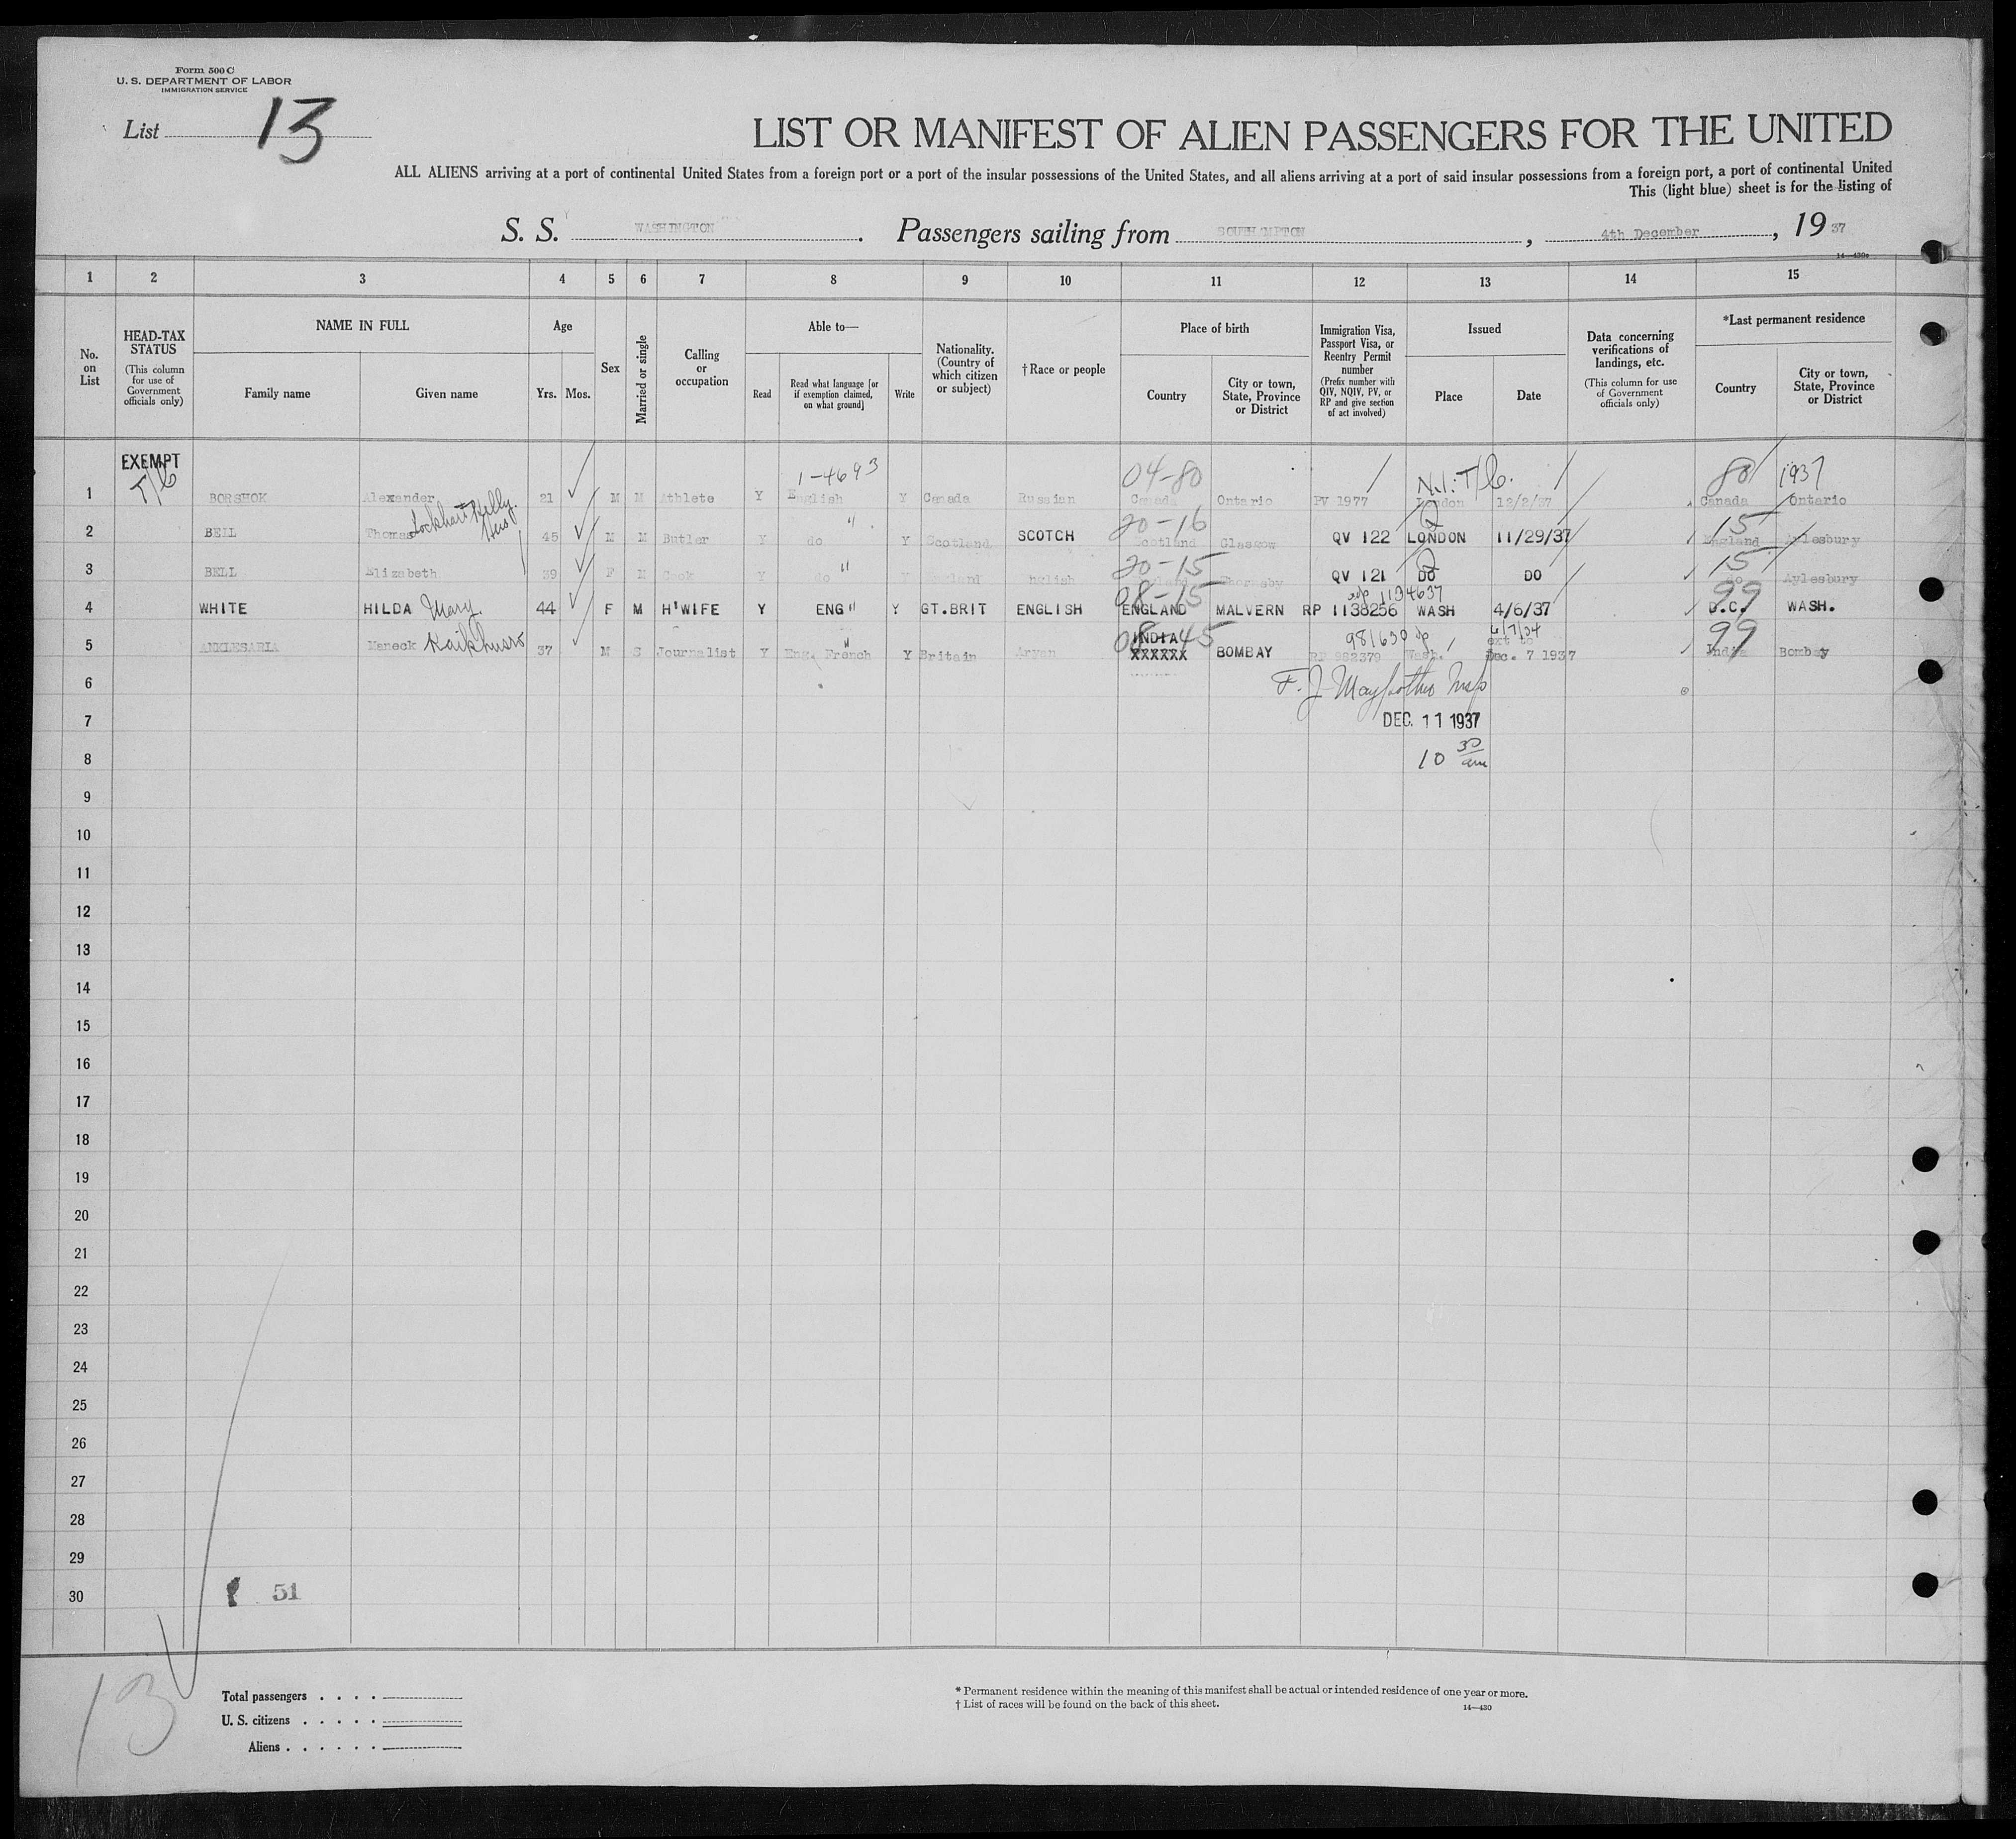 Form 500 C
U. S. DEPARTMENT OF LABOR
IMMIGRATION SERVICE
List 13
LIST OR MANIFEST OF ALIEN PASSENGERS FOR THE UNITED
ALL ALIENS arriving at a port of continental United States from a foreign port or a port of the insular possessions of the United States, and all aliens arriving at a port of said insular possessions from a foreign port, a port of continental United
This (light blue) sheet is for the listing of
S. S. WASHINGTON. Passengers sailing from SOUTHAMPTON, 4th December, 1937
14—430c
1 2 3 4 5 6 7 8 9 10 11 12 13 14 15
No. on List
HEAD-TAX STATUS (This column for use of Government officials only)
NAME IN FULL
Family name Given name
Age
Yrs. Mos.
Sex
Married or single
Calling or occupation
Able to—
Read Read what language [or if exemption claimed, on what ground] Write
Nationality. (Country of which citizen or subject)
†Race or people
Place of birth
Country City or town, State, Province or District
Immigration Visa, Passport Visa, or Reentry Permit number (Prefix number with QIV, NQIV, PV, or RP and give section of act involved)
Issued
Place Date
Data concerning verifications of landings, etc. (This column for use of Government officials only)
*Last permanent residence
Country City or town, State, Province or District
EXEMPT 1-4693 04-80 N.I. T/C. 80 1937
1 T/C BORSHOK Alexander 21 M M Athlete Y English Y Canada Russian Canada Ontario PV 1977 London 12/2/37 Canada Ontario
Lockhart 20-16 Q 15
2 BELL Thomas 45 M M Butler Y do " Y Scotland SCOTCH Scotland Glasgow QV 122 LONDON 11/29/37 England Aylesbury
20-15 Q 15
3 BELL Elizabeth 39 F M Cook Y do " Y QV 121 DO DO do Aylesbury
08-15 1134637 99
4 WHITE HILDA Mary. 44 F M H'WIFE Y ENG " Y GT.BRIT ENGLISH ENGLAND MALVERN RP 1138256 WASH 4/6/37 D.C. WASH.
08-45 INDIA 981630 6/7/34 ext to 99
5 ANKLESARIA Maneck Kaikhusro 37 M S Journalist Y Eng. French " Y Britain Aryan XXXXXX BOMBAY RP 982379 Wash. Dec. 7 1937 India Bombay
6 F. J.
7 DEC. 11 1937
8 10 30 am
9
10
11
12
13
14
15
16
17
18
19
20
21
22
23
24
25
26
27
28
29
30 51
13
Total passengers . . . .
U. S. citizens . . . . .
Aliens . . . . . .
* Permanent residence within the meaning of this manifest shall be actual or intended residence of one year or more.
† List of races will be found on the back of this sheet.
14—430